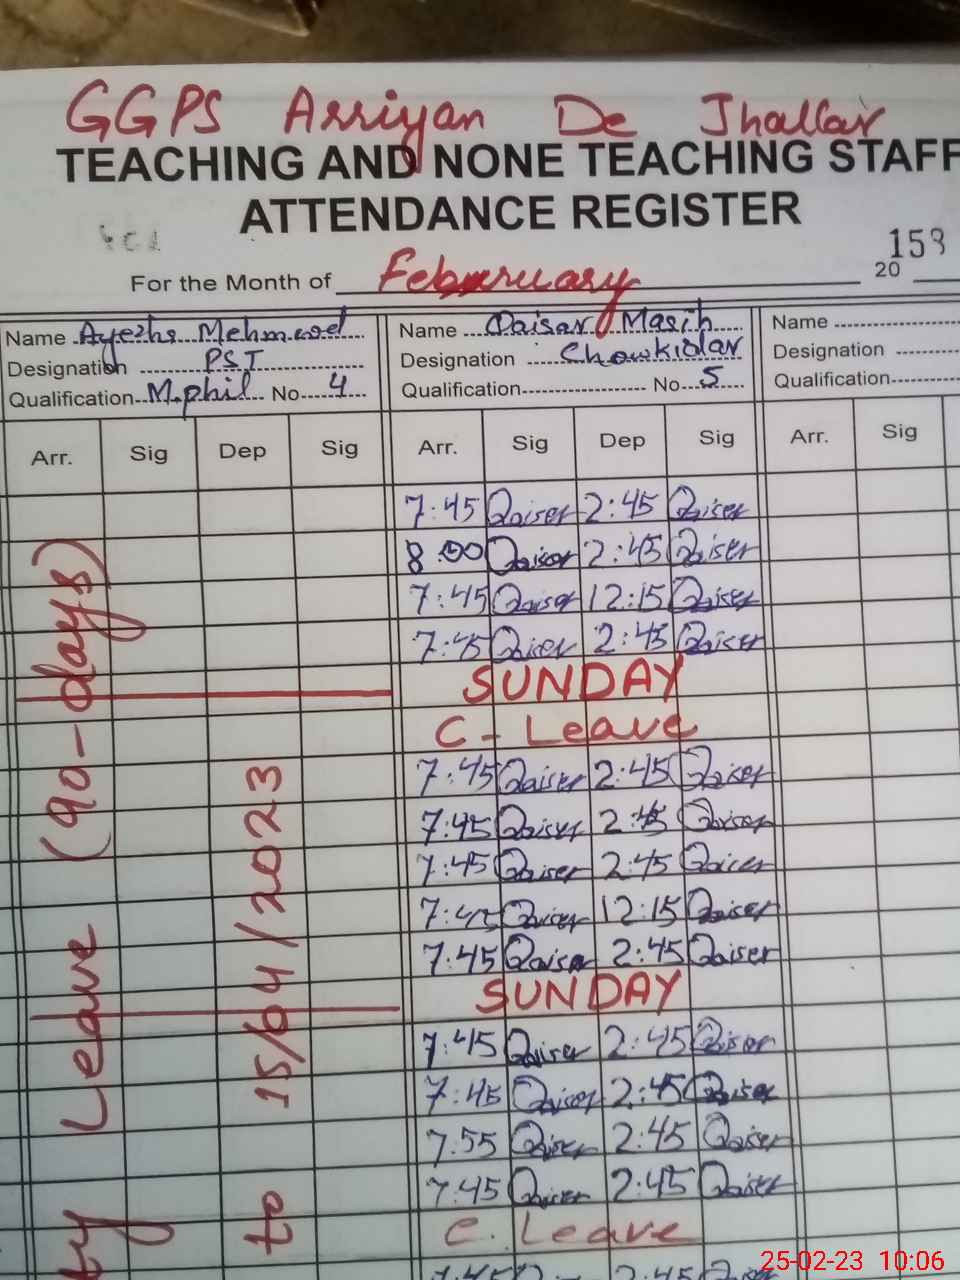 GGPS Arriyan De Jhallar
TEACHING AND NONE TEACHING STAFF
ATTENDANCE REGISTER
158
For the Month of February 20
Name Ayesha Mehmood Name Qaisar Masih Name
Designation PST Designation Chowkidar Designation
Qualification M.phil No 4 Qualification No 5 Qualification
Arr. Sig Dep Sig Arr. Sig Dep Sig Arr. Sig
7:45 Qaiser 2:45 Qaiser
8:00 Qaiser 2:45 Qaiser
7:45 Qaiser 12:15 Qaiser
7:45 Qaiser 2:45 Qaiser
SUNDAY
C - Leave
7:45 Qaiser 2:45 Qaiser
7:45 Qaiser 2:45 Qaiser
7:45 Qaiser 2:45 Qaiser
7:45 Qaiser 12:15 Qaiser
7:45 Qaiser 2:45 Qaiser
SUNDAY
7:45 Qaiser 2:45 Qaiser
7:45 Qaiser 2:45 Qaiser
7:55 Qaiser 2:45 Qaiser
7:45 Qaiser 2:45 Qaiser
C. Leave
7:45 2:45
ty Leave (90-days)
to 15/04/2023
25-02-23 10:06